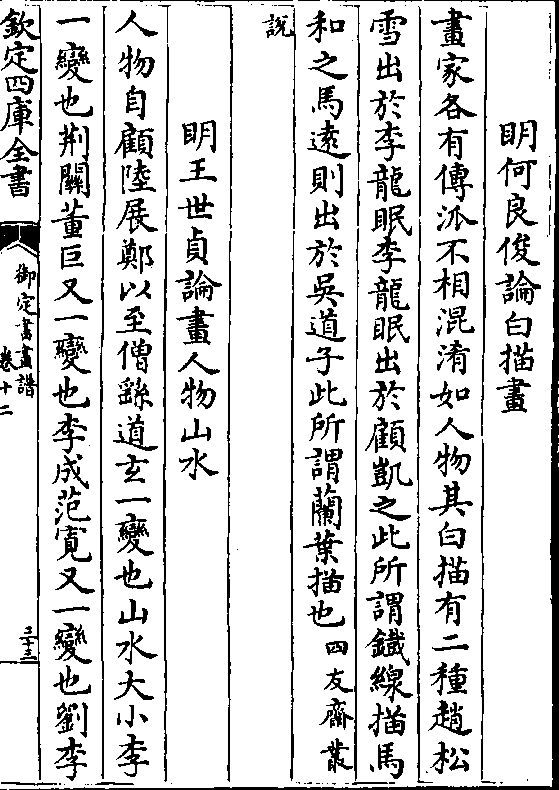 明何良俊論白描畫
畫家各有傳派不相混淆如人物其白描有二種趙松
雪出於李龍眠李龍眠出於顧凱之此所謂鐵線描馬
和之馬逺則出於吳道子此所謂蘭葉描也四友齋叢
說
明王世貞論畫人物山水
人物自顧陸展鄭以至僧繇道玄一變也山水大小李
一變也荆關董巨又一變也李成范寛又一變也劉李
欽定四庫全書
御定書畫譜
卷十二
三十三